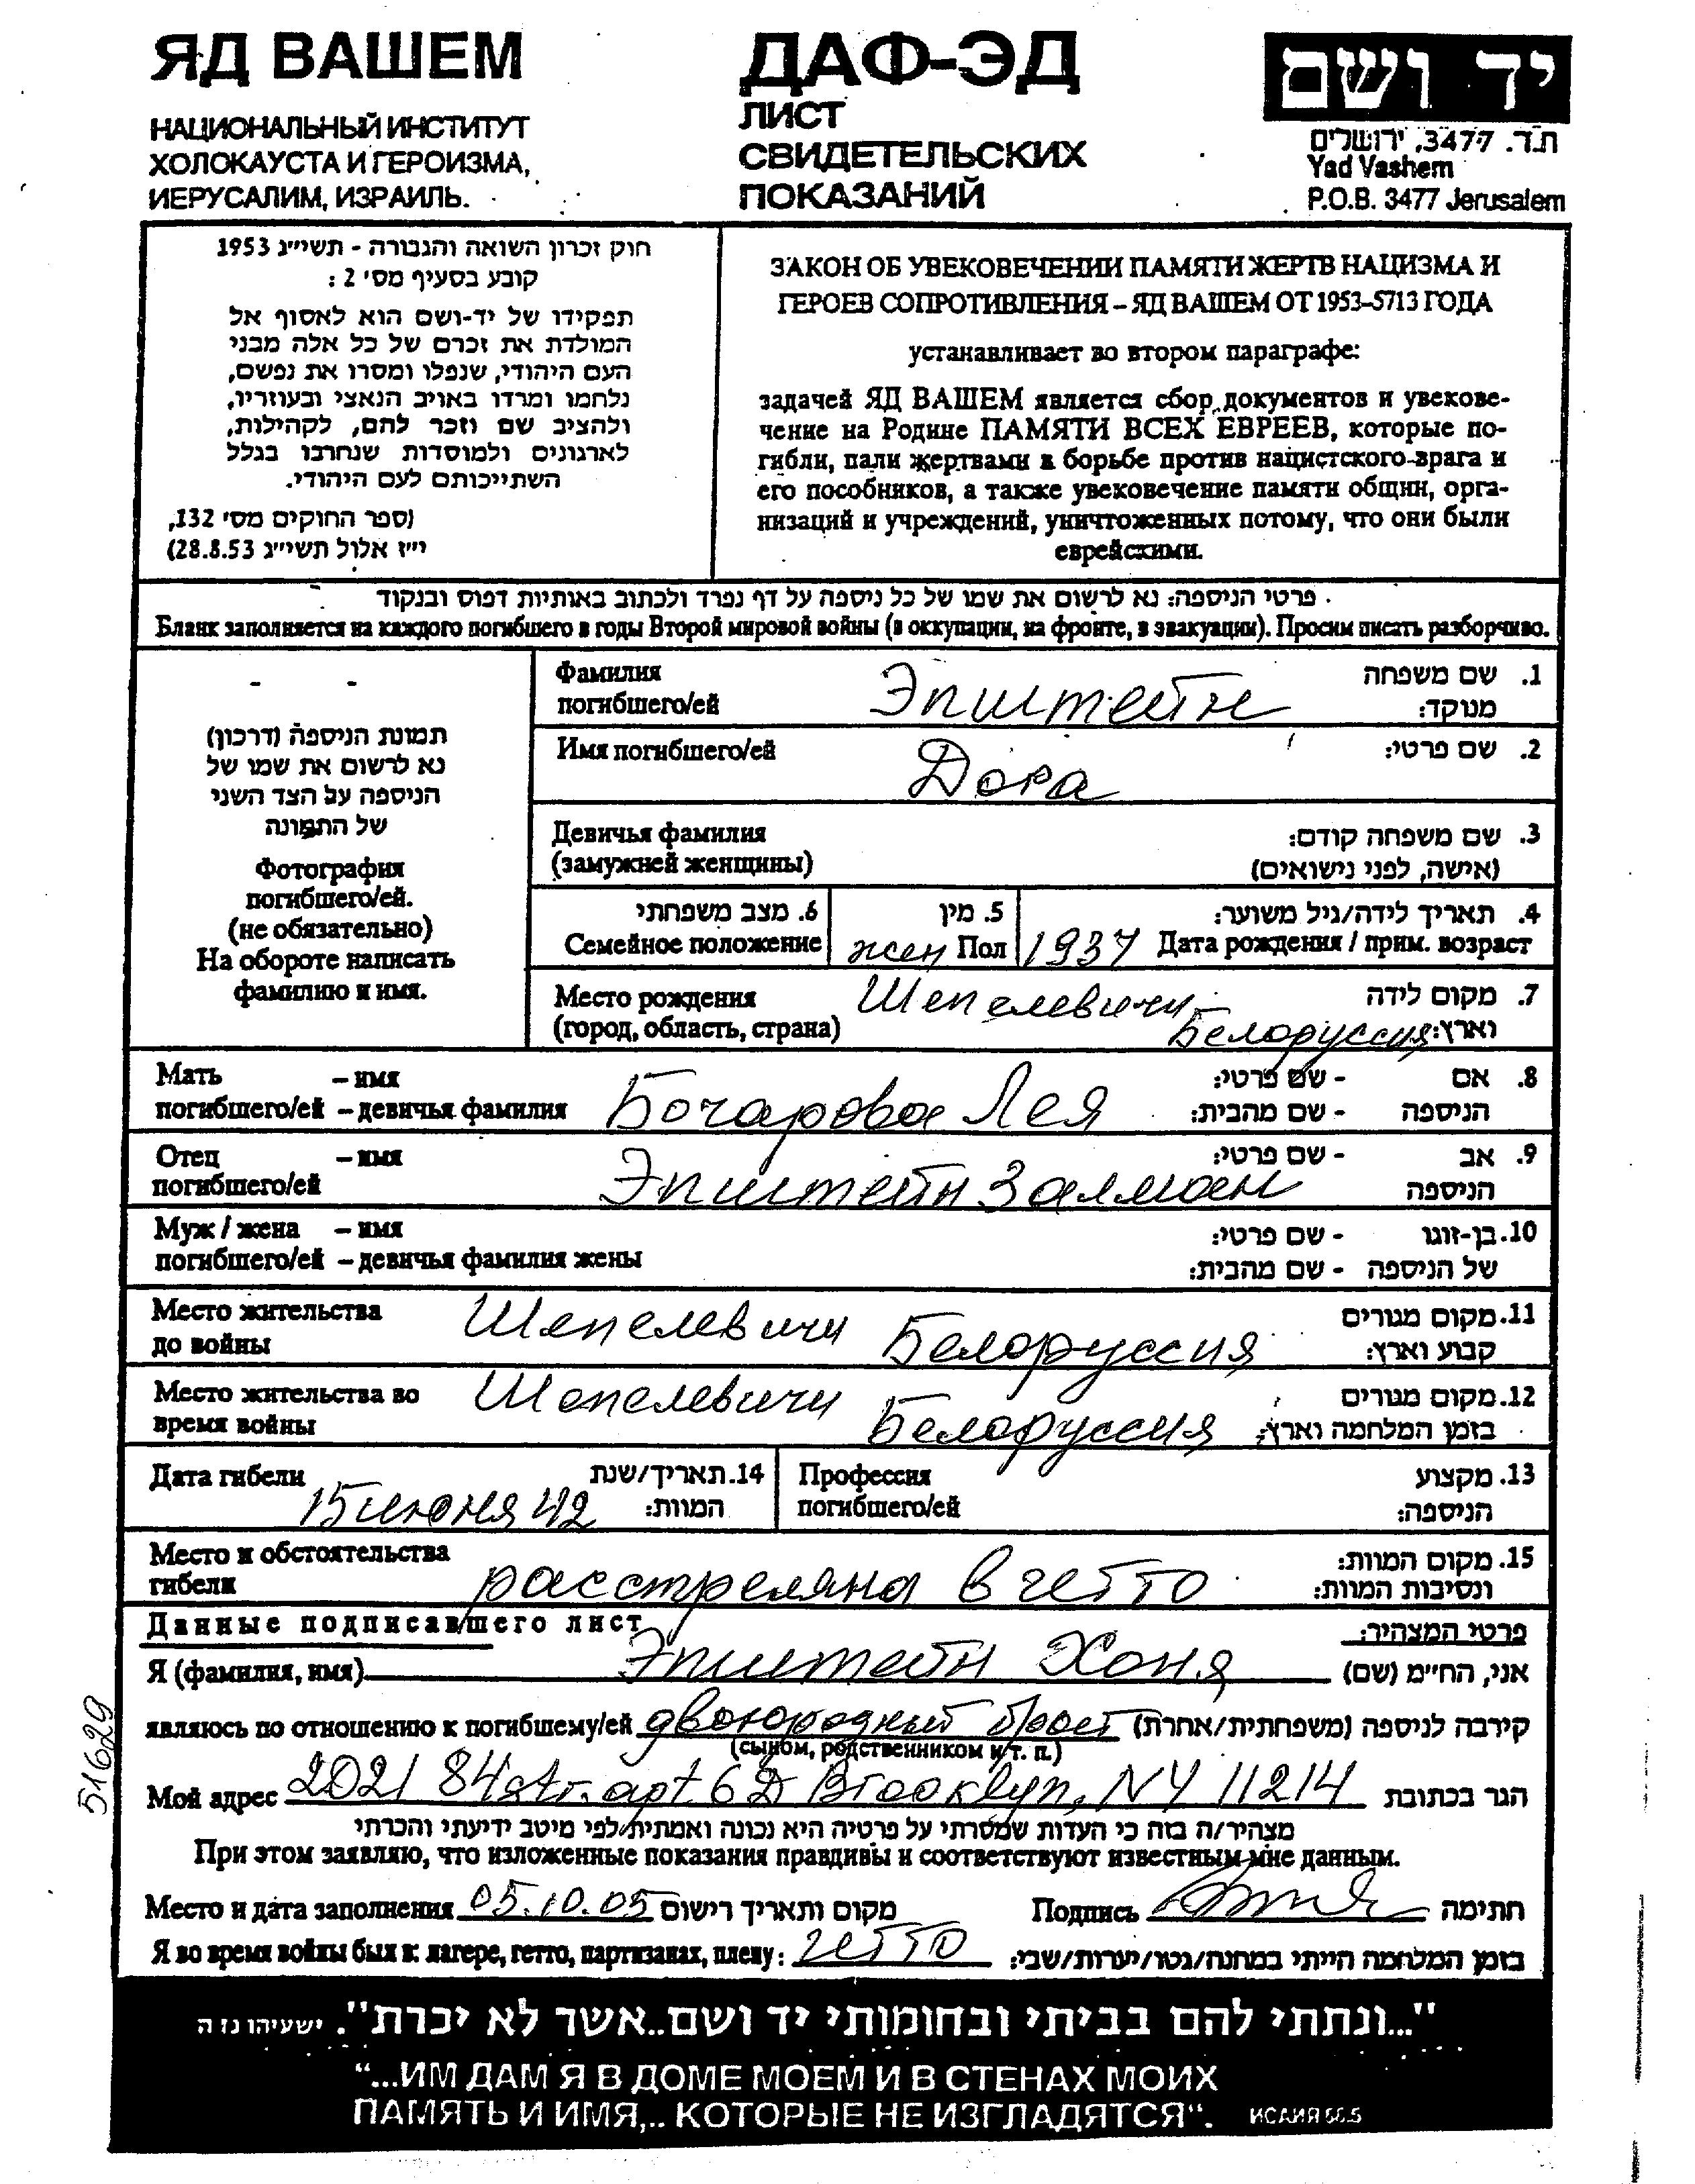 ЯД ВАШЕМ
НАЦИОНАЛЬНЫЙ ИНСТИТУТ
ХОЛОКАУСТА И ГЕРОИЗМА,
ИЕРУСАЛИМ, ИЗРАИЛЬ.
ДАФ-ЭД
ЛИСТ
СВИДЕТЕЛЬСКИХ
ПОКАЗАНИЙ
יד ושם
ת.ד. 3477, ירושלים
Yad Vashem
P.O.B. 3477 Jerusalem
חוק זכרון השואה והגבורה - תשי״ג 1953
קובע בסעיף מס׳ 2 :
תפקידו של יד-ושם הוא לאסוף אל
המולדת את זכרם של כל אלה מבני
העם היהודי, שנפלו ומסרו את נפשם,
נלחמו ומרדו באויב הנאצי ובעוזריו,
ולהציב שם וזכר להם, לקהילות,
לארגונים ולמוסדות שנחרבו בגלל
השתייכותם לעם היהודי.
(ספר החוקים מס׳ 132,
י״ז אלול תשי״ג 28.8.53)
ЗАКОН ОБ УВЕКОВЕЧЕНИИ ПАМЯТИ ЖЕРТВ НАЦИЗМА И
ГЕРОЕВ СОПРОТИВЛЕНИЯ – ЯД ВАШЕМ ОТ 1953-5713 ГОДА
устанавливает во втором параграфе:
задачей ЯД ВАШЕМ является сбор документов и увекове-
чение на Родине ПАМЯТИ ВСЕХ ЕВРЕЕВ, которые по-
гибли, пали жертвами в борьбе против нацистского врага и
его пособников, а также увековечение памяти общин, орга-
низаций и учреждений, уничтоженных потому, что они были
еврейскими.
פרטי הניספה: נא לרשום את שמו של כל ניספה על דף נפרד ולכתוב באותיות דפוס ובנקוד .
Бланк заполняется на каждого погибшего в годы Второй мировой войны (в оккупации, на фронте, в эвакуации). Просим писать разборчиво.
תמונת הניספה (דרכון)
נא לרשום את שמו של
הניספה על הצד השני
של התמונה
Фотография
погибшего/ей.
(не обязательно)
На обороте написать
фамилию и имя.
Фамилия
погибшего/ей
Эпштейн
1. שם משפחה
מנוקד:
Имя погибшего/ей
Дора
2. שם פרטי:
Девичья фамилия
(замужней женщины)
3. שם משפחה קודם:
(אישה, לפני נישואים)
6. מצב משפחתי
Семейное положение
5. מין
жен Пол
4. תאריך לידה/גיל משוער:
1937 Дата рождения / прим. возраст
Место рождения
(город, область, страна)
Шепелевичи
Белоруссия
7. מקום לידה
וארץ:
Мать – имя
погибшего/ей – девичья фамилия
Бочарова Лея
8. אם - שם פרטי:
הניספה - שם מהבית:
Отец – имя
погибшего/ей
Эпштейн Залман
9. אב - שם פרטי:
הניספה
Муж / жена – имя
погибшего/ей – девичья фамилия жены
10. בן-זוגו - שם פרטי:
של הניספה - שם מהבית:
Место жительства
до войны
Шепелевичи Белоруссия
11. מקום מגורים
קבוע וארץ:
Место жительства во
время войны
Шепелевичи Белоруссия
12. מקום מגורים
בזמן המלחמה וארץ:
Дата гибели
15 июня 42
14. תאריך/שנת
המוות:
Профессия
погибшего/ей
13. מקצוע
הניספה:
Место и обстоятельства
гибели
расстреляна в гетто
15. מקום המוות:
ונסיבות המוות:
Данные подписавшего лист
פרטי המצהיר:
Я (фамилия, имя) Эпштейн Хоня אני, הח״מ (שם)
являюсь по отношению к погибшему/ей двоюродный брат קירבה לניספה (משפחתית/אחרת)
(сыном, родственником и т. п.)
Мой адрес 2021 84 str. apt 6D Brooklyn, NY 11214 הגר בכתובת
מצהיר/ה בזה כי העדות שמסרתי על פרטיה היא נכונה ואמתית לפי מיטב ידיעתי והכרתי
При этом заявляю, что изложенные показания правдивы и соответствуют известным мне данным.
Место и дата заполнения 05.10.05 מקום ותאריך רישום Подпись חתימה
Я во время войны был в: лагере, гетто, партизанах, плену: гетто בזמן המלחמה הייתי במחנה/גטו/יערות/שבי:
51629
"...ונתתי להם בביתי ובחומותי יד ושם..אשר לא יכרת". ישעיהו נז ה
“...ИМ ДАМ Я В ДОМЕ МОЕМ И В СТЕНАХ МОИХ
ПАМЯТЬ И ИМЯ,.. КОТОРЫЕ НЕ ИЗГЛАДЯТСЯ“. ИСАИЯ 56.5